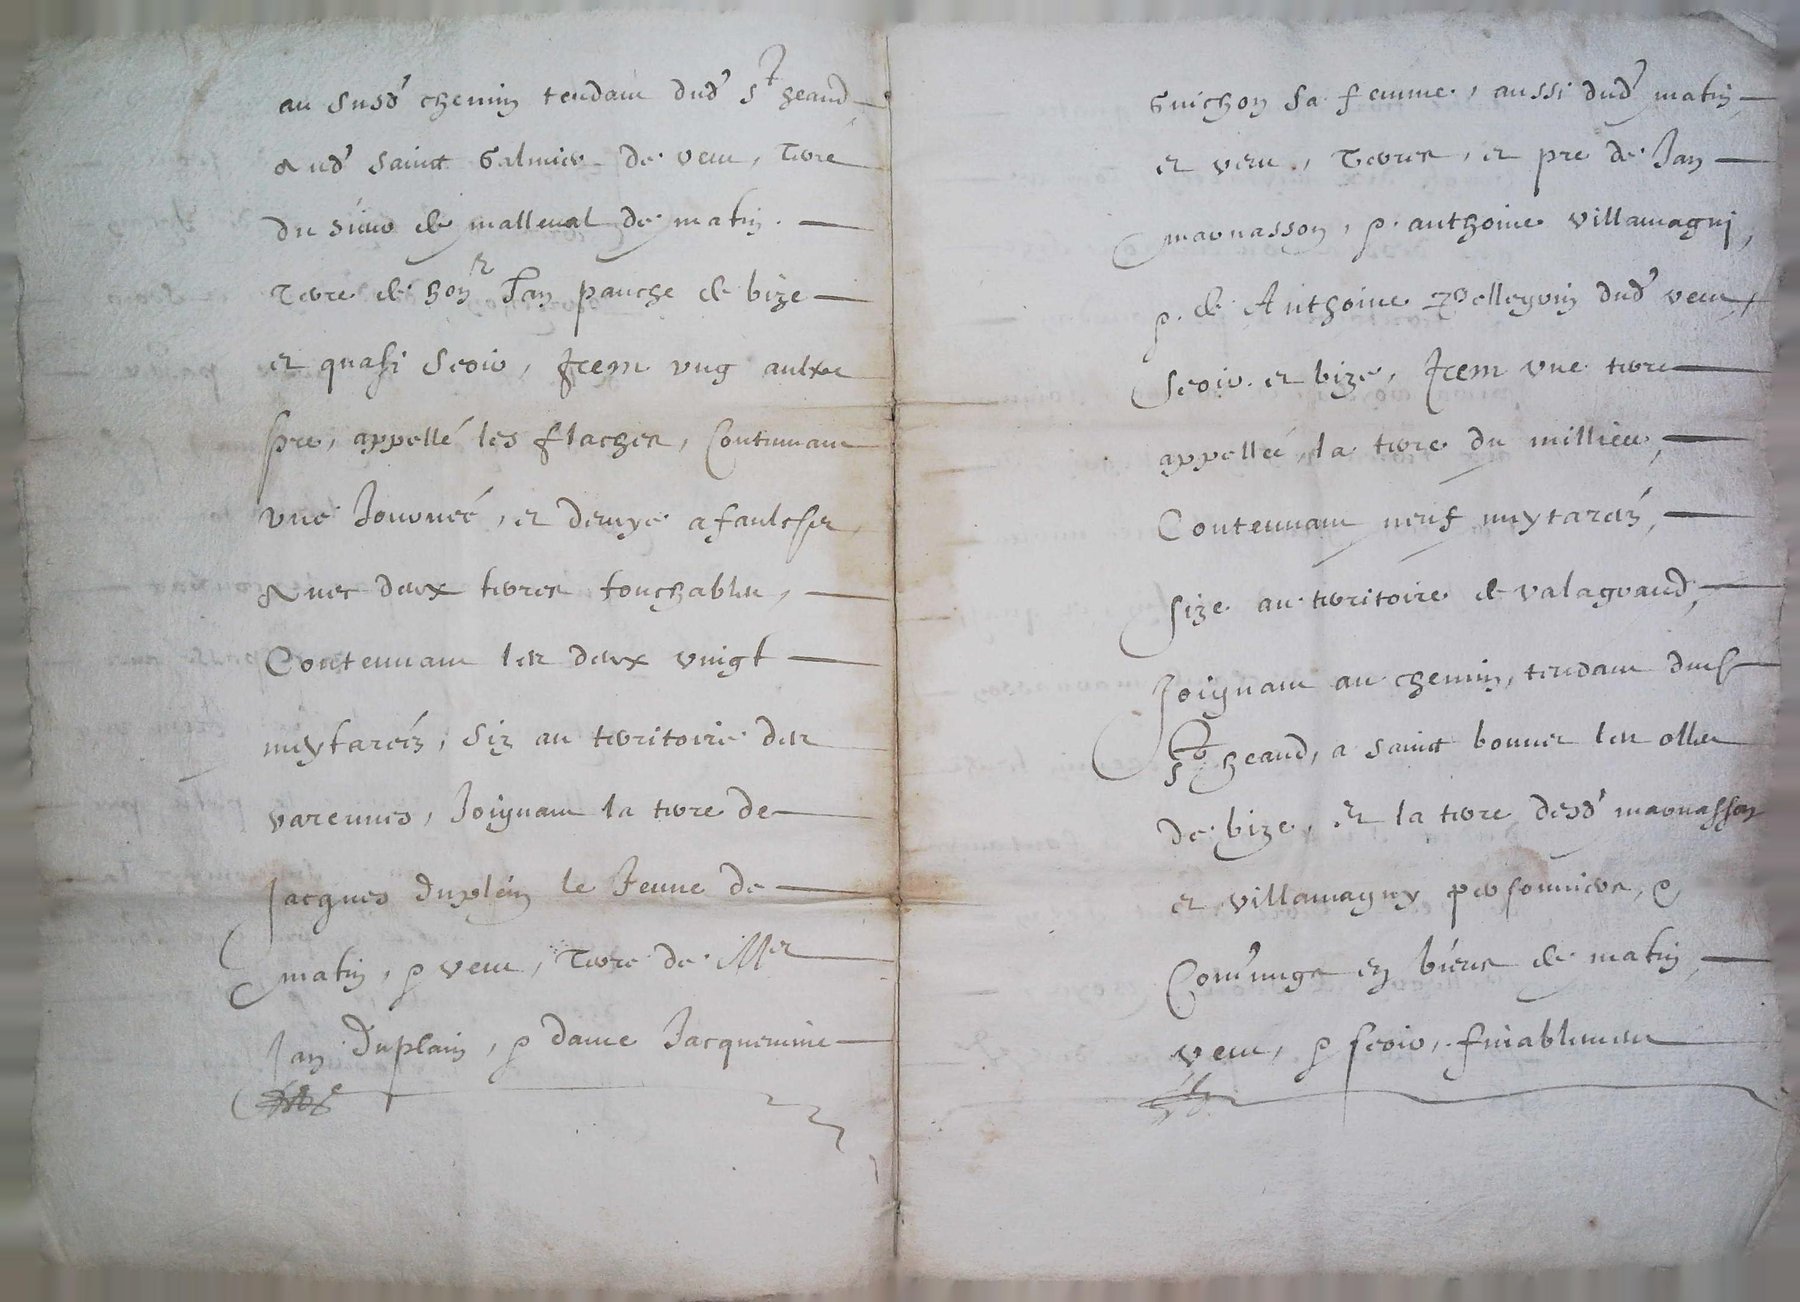 au susd chemin tendant dud st heand
aud sainct Galmier de vent, terre
du sieur de malleval de matin.
Terre de honr Jan pauche de bize
et quasi seoir, Item ung aultre
pre, appellé les flaches, Contenant
une Journeé, et demye a faulcher
Avec deux terres touchables,
Contenant les deux vingt
meytareés, siz au territoire des
varennes, Joignant la terre de
Jacques duplein le Jeune de
matin, et vent, Terre de Mer
Jan Duplain, et dame Jacquemine
Guichon sa femme, aussi dud matin,
et vent, Terres, et pre de Jan
marnasson, et anthoine villamagni,
et de Anthoine Pellegrin dud vent,
seoir et bize, Item une terre
appelleé, la terre du millieu,
Contennant neuf meytareés,
size au territoire de valagrand,
Joignant au chemin, tendant dud
st heand, a sainct bonnet les olles
de bize, Et la terre desd marnasson
et villamagny personniers, et
Communs en biens de matin,
vent, et seoir, finablement